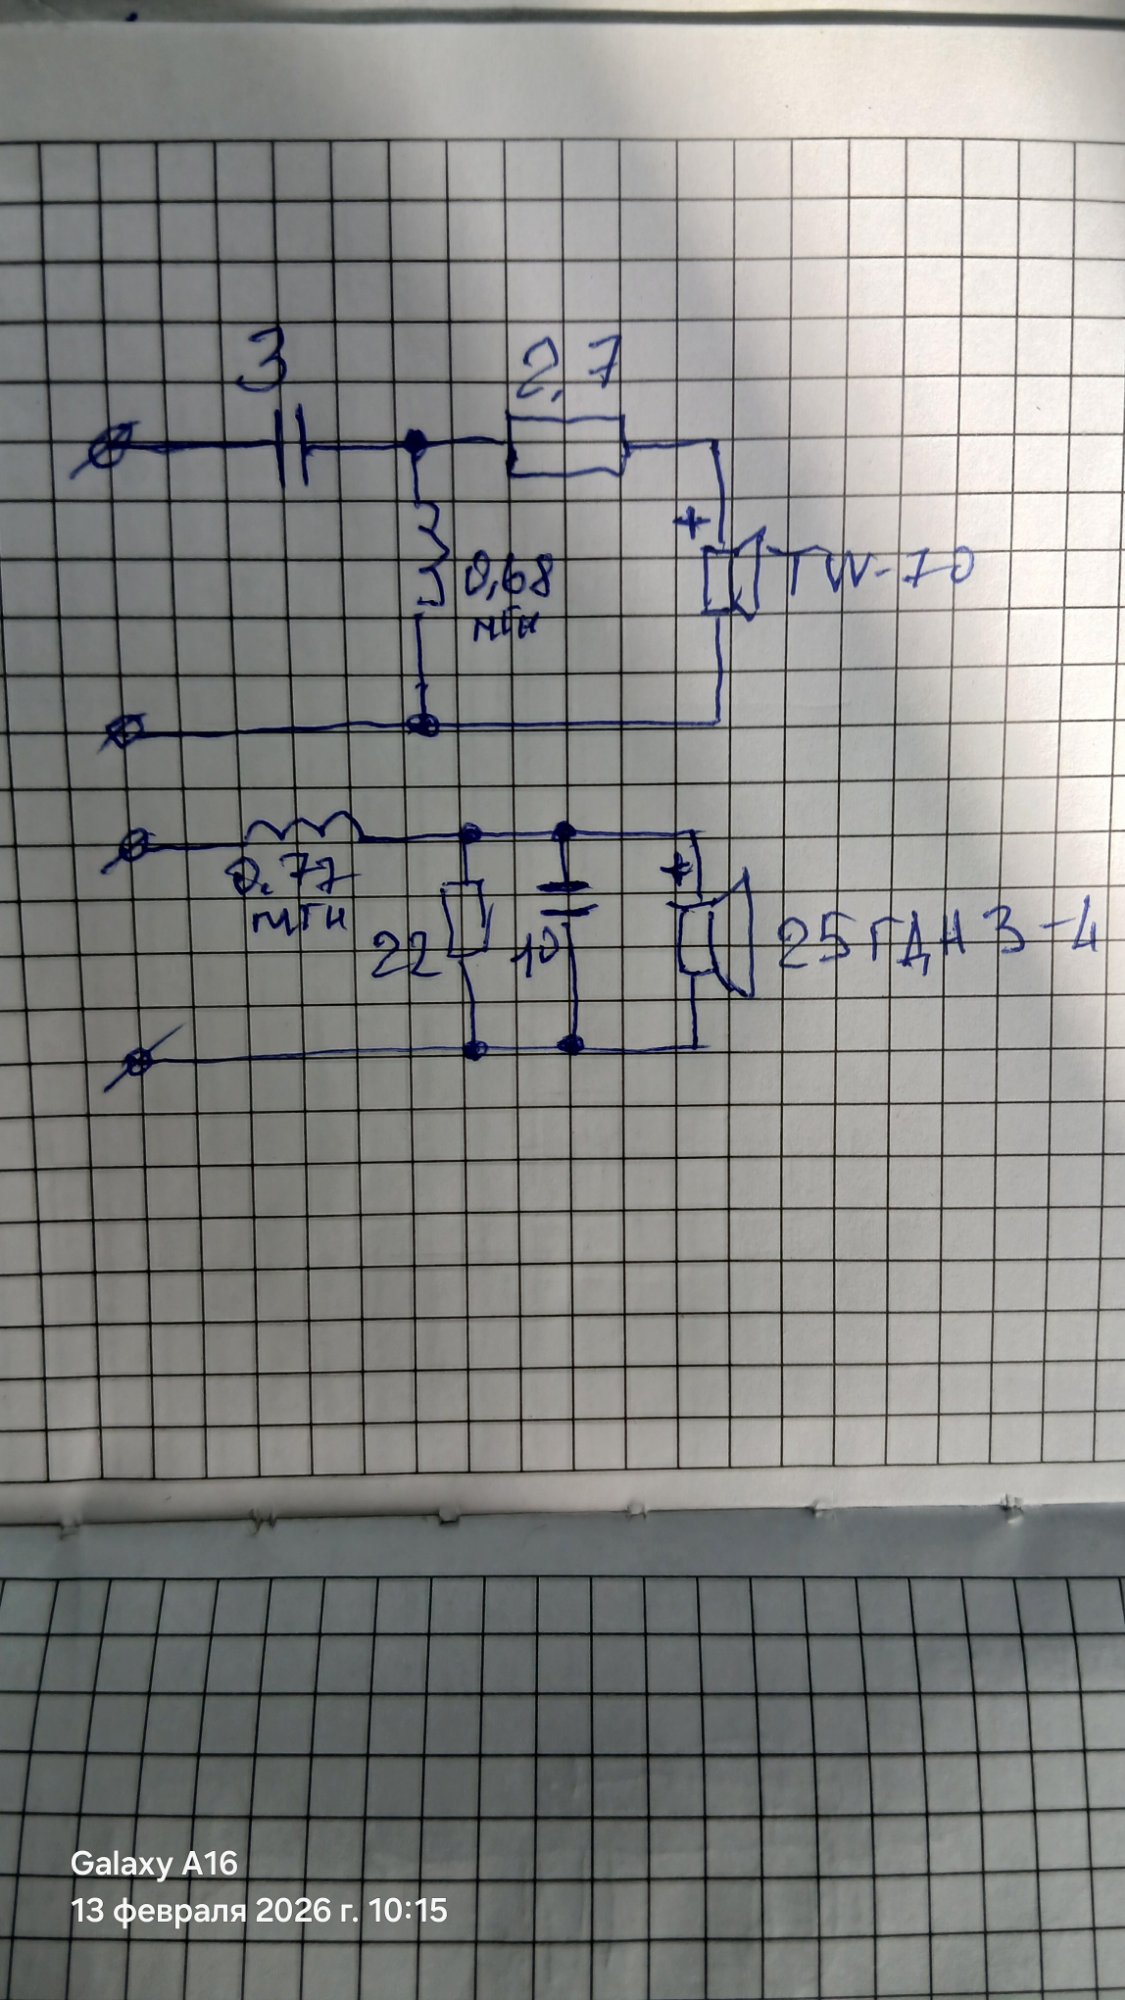 3
2,7
+
0,68
мГн
TW-70
0.77
мГн
22
10
+
25ГДН3-4
Galaxy A16
13 февраля 2026 г. 10:15